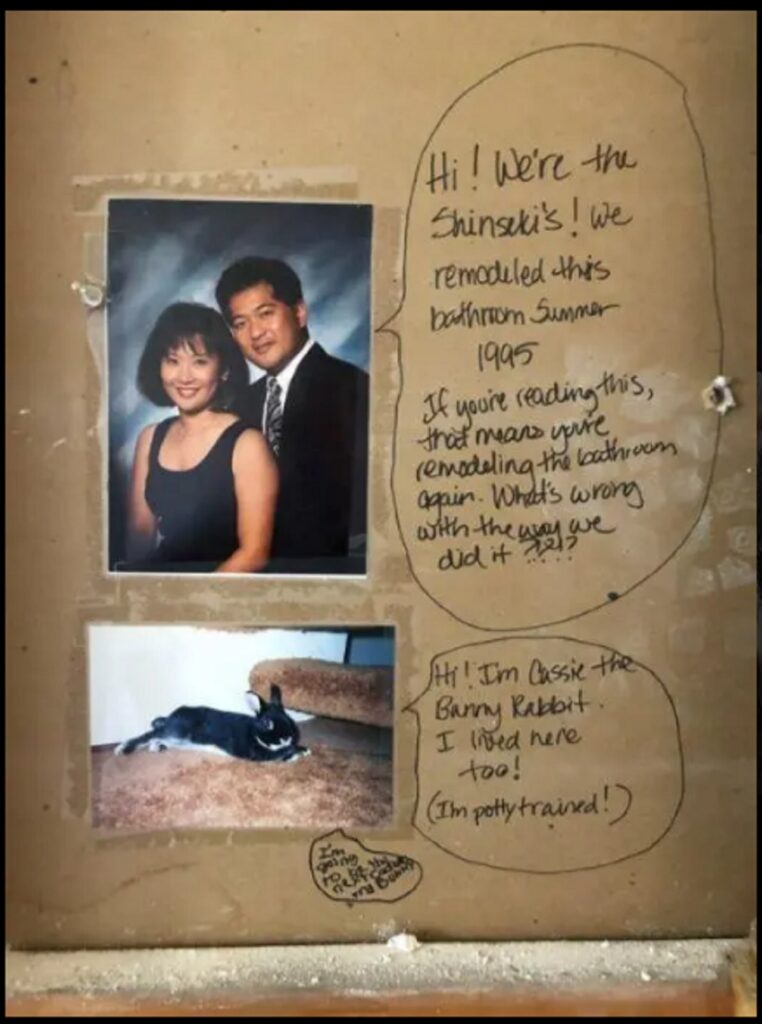 Hi! We're the
Shinseki's! We
remodeled this
bathroom Summer
1995
If you're reading this,
that means you're
remodeling the bathroom
again. What's wrong
with the way we
did it ?????
Hi! I'm Cassie the
Bunny Rabbit.
I lived here
too!
(I'm potty trained!)
I'm
going
to be the
next